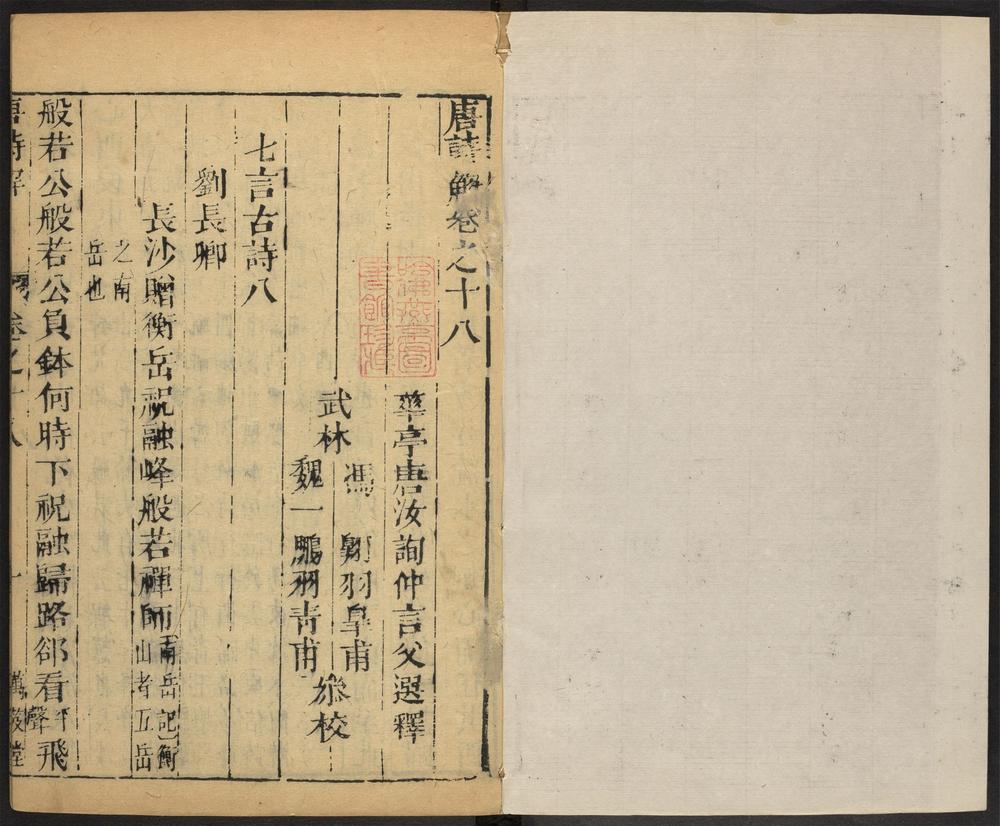 唐詩解卷之十八
華亭唐汝詢仲言父選釋
武林
馮翺羽皐甫
魏一鵬羽青甫
叅校
七言古詩八
劉長卿
長沙贈衡岳祝融峰般若禪師
南岳記衡
山者五岳
之南
岳也
般若公般若公負鉢何時下祝融歸路郤看平聲飛
唐詩解
卷之十八
一
萬笈堂